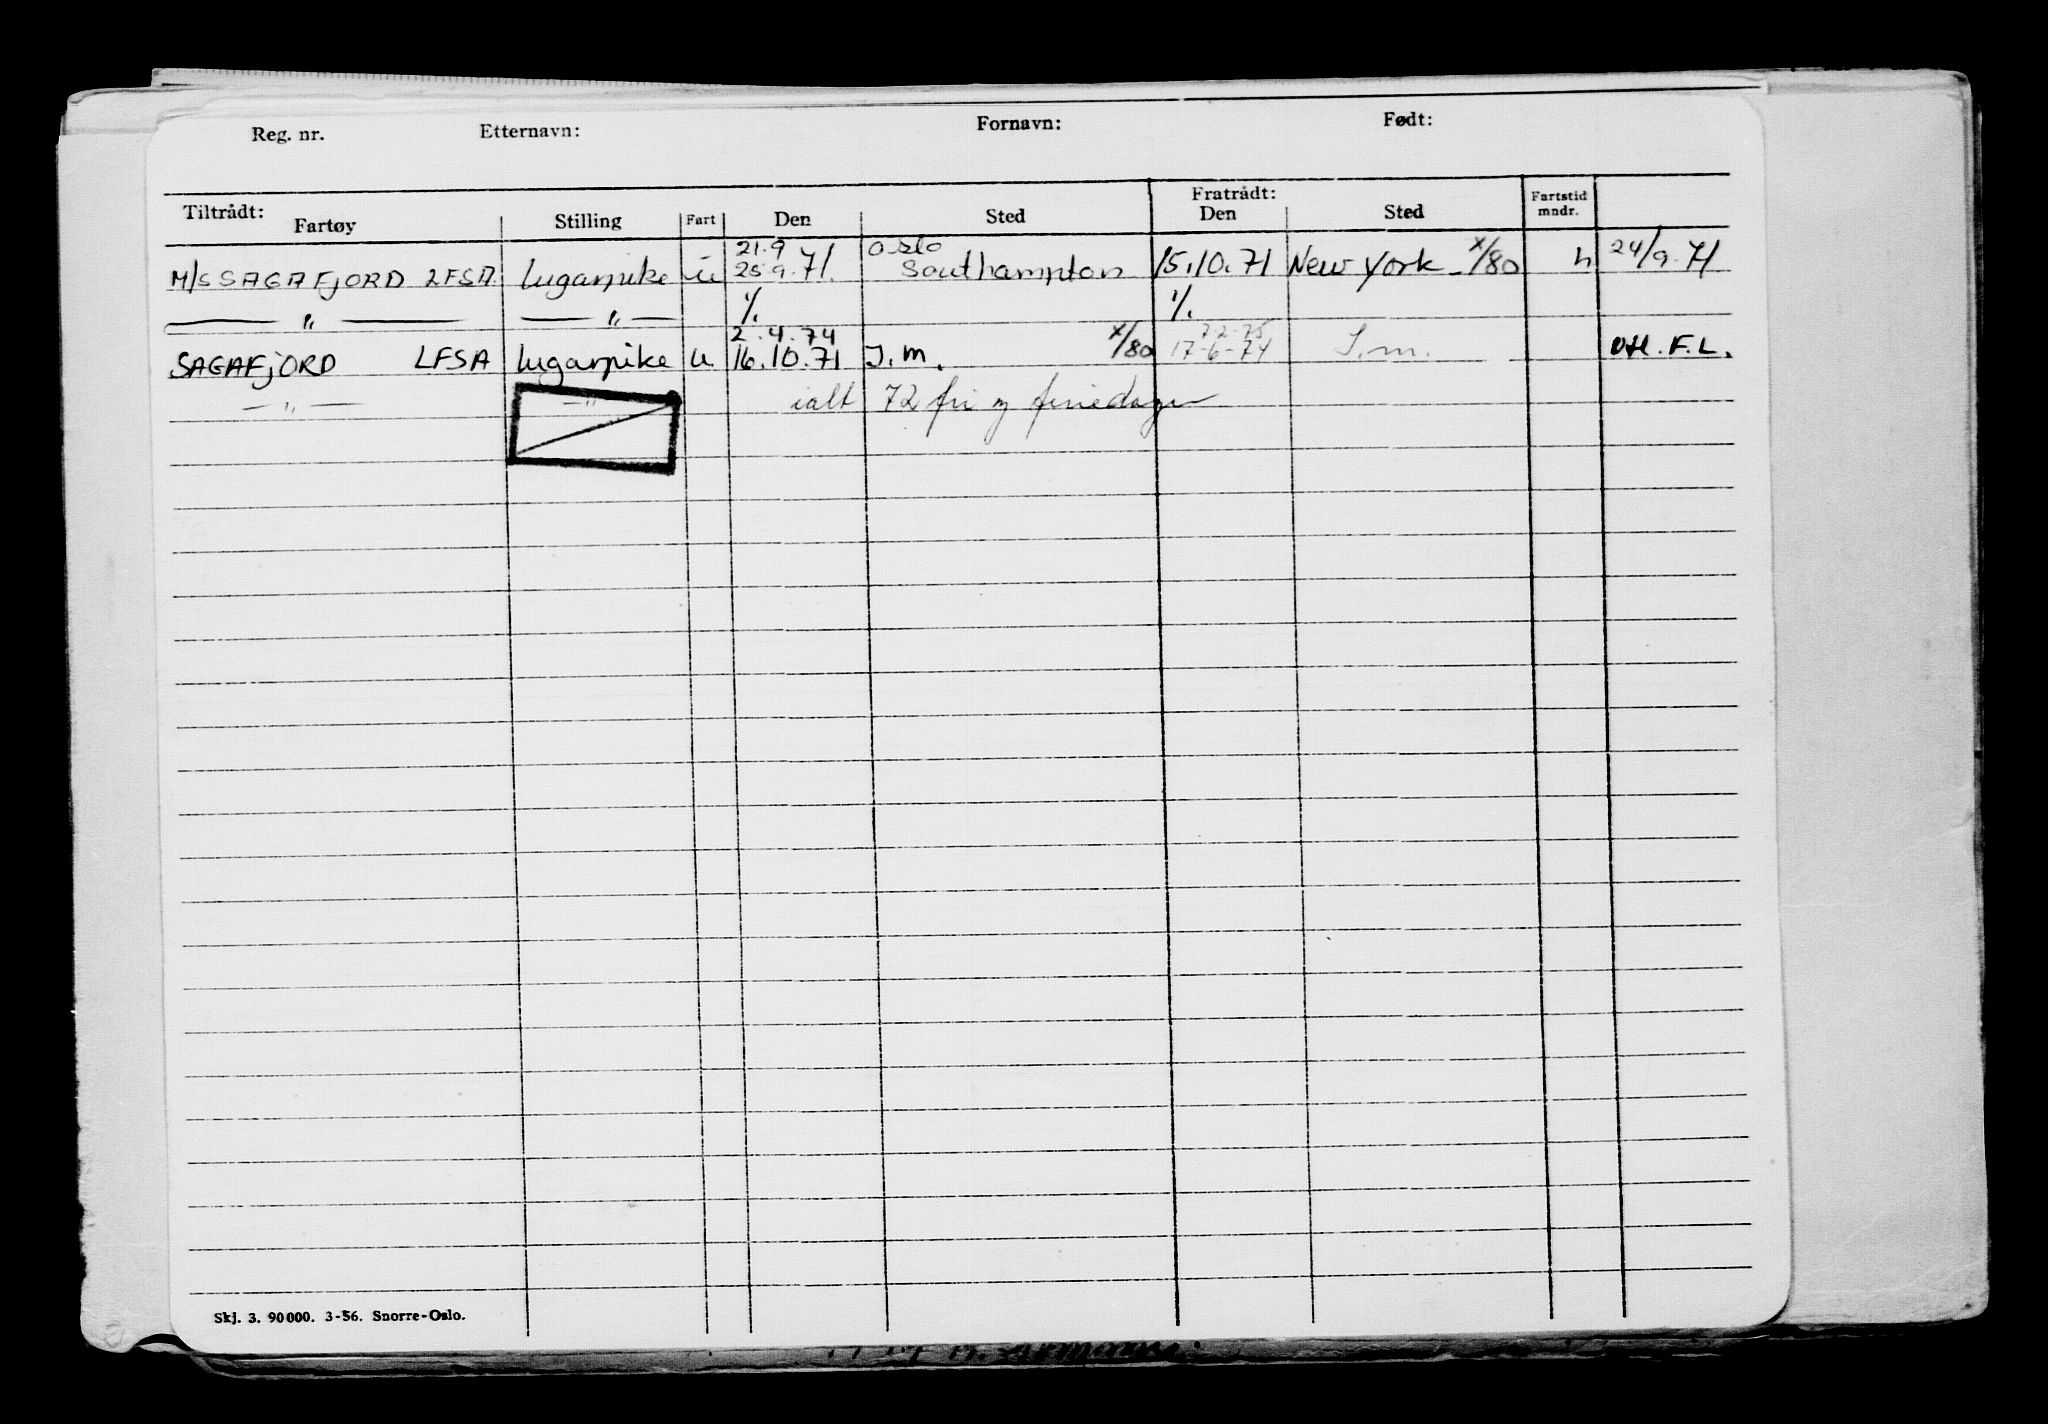 Reg. nr. Etternavn: Fornavn: Født:
Tiltrådt: Fratrådt:
Fartøy Stilling Fart Den Sted Den Sted Fartstid mndr.
21.9 Oslo
M/S SAGAFJORD LFSA. lugarpike u 25.9.71. Southampton 15.10.71 New York - x/80 h 24/9.71
— " — — " — 1/. 1/.
2.4.74 x/80 7.2-75
SAGAFJORD LFSA lugarpike u. 16.10.71 J.m. 17-6-74 J.m. F.L.
— " — — " — ialt 72 fri og feriedager
Skj. 3. 90000. 3-56. Snorre-Oslo.